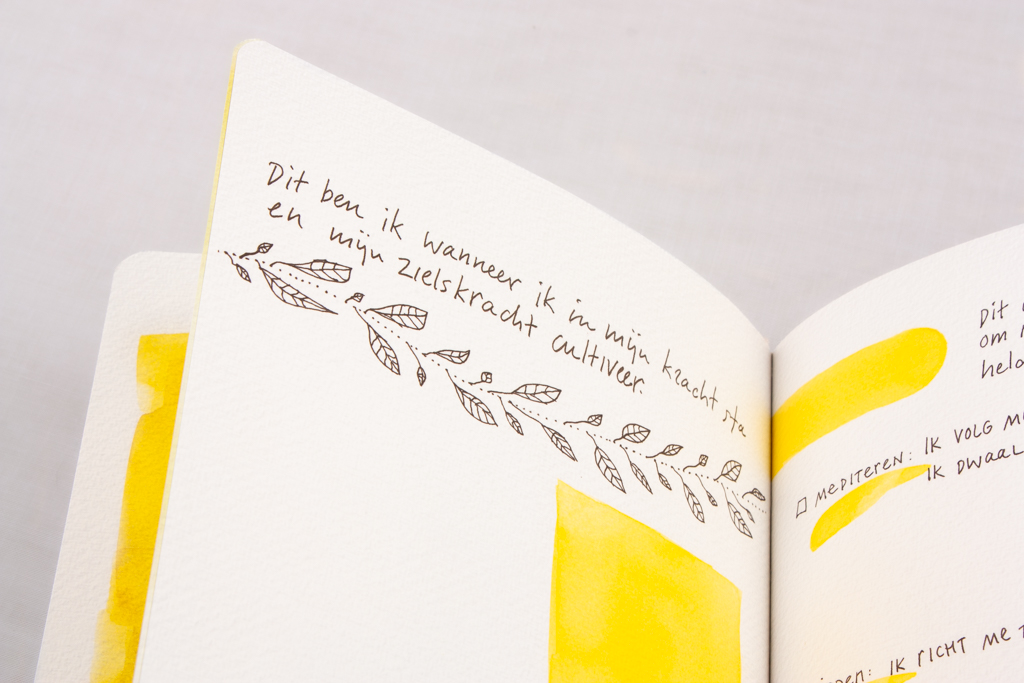 Dit ben ik wanneer ik in mijn kracht sta
en mijn zielskracht cultiveer.
Dit
om
MEDITEREN: IK VOLG
IK DWAAL
IK RICHT ME